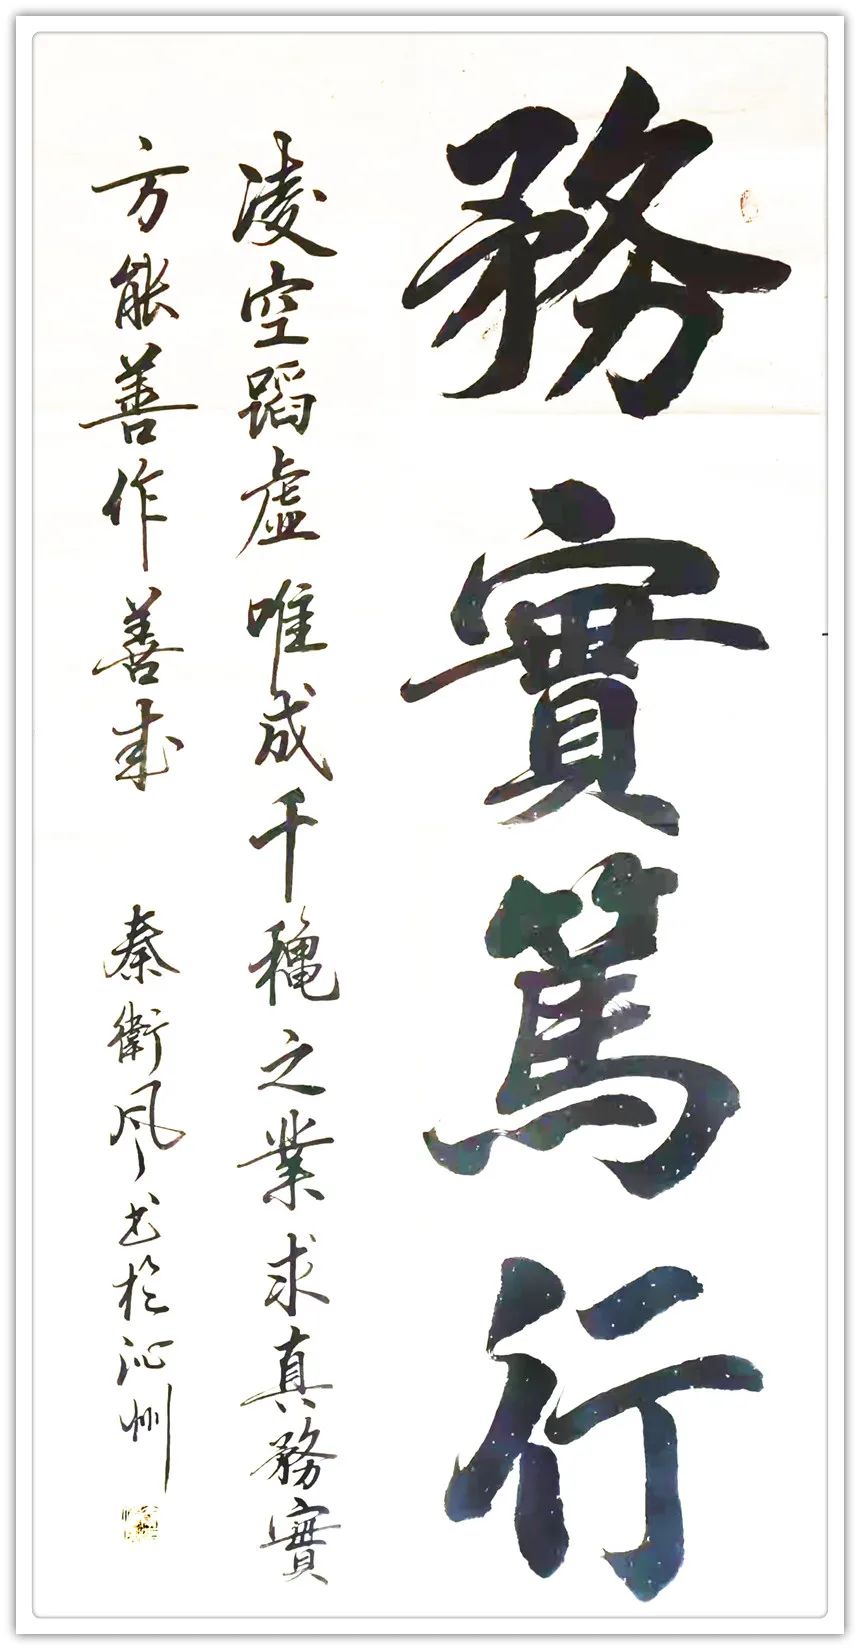 務實篤行
凌空蹈虛唯成千穐之業求真務實
方能善作善成
秦衛風书於沁州